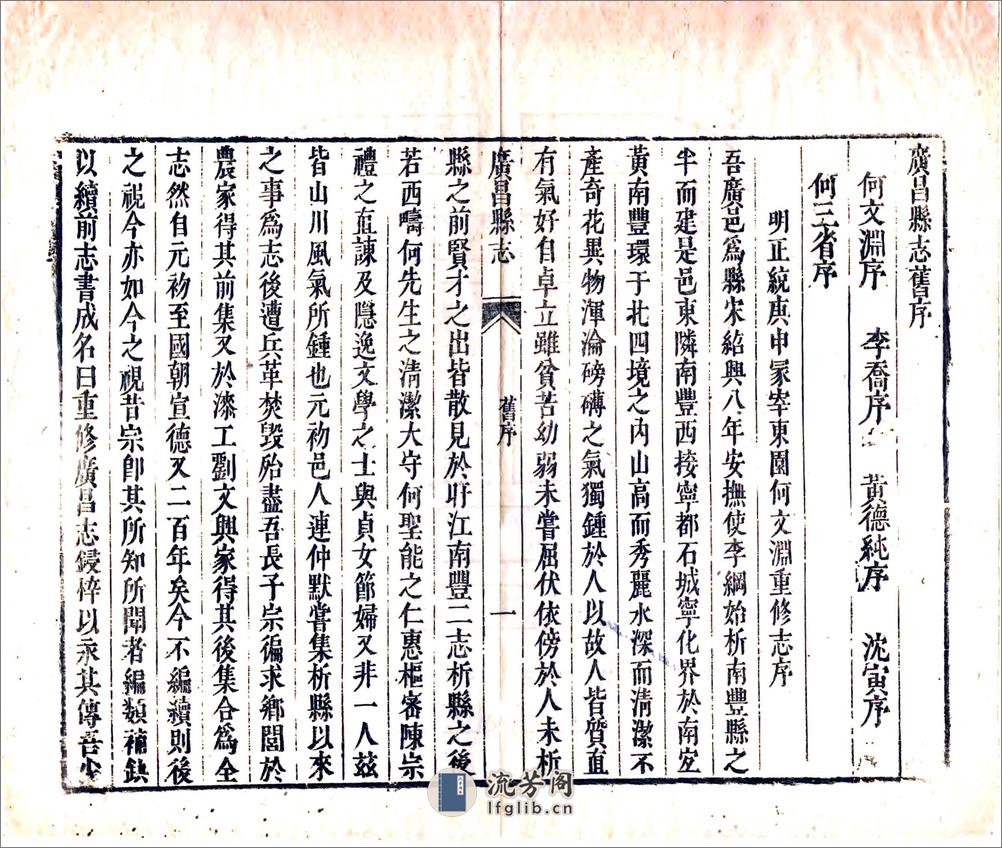 廣昌縣志舊序
何文淵序 李喬序 黃德純序 沈寅序
何三省序
明正統庚申冡宰東園何文淵重修志序
吾廣邑爲縣宋紹興八年安撫使李綱始析南豐縣之
半而建是邑東隣南豐西接寧都石城寧化界於南宜
黃南豐環于北四境之內山高而秀麗水深而清潔不
產奇花異物渾淪磅礴之氣獨鍾於人以故人皆質直
有氣好自卓立雖貧苦幼弱未嘗屈伏依傍於人未析
廣昌縣志 舊序 一
縣之前賢才之出皆散見於盱江南豐二志析縣之後
若西疇何先生之清潔大守何聖能之仁惠樞審陳宗
禮之直諫及隱逸文學之士與貞女節婦又非一人茲
皆山川風氣所鍾也元初邑人連仲默嘗集析縣以來
之事爲志後遭兵革焚毀殆盡吾長子宗徧求鄉閭於
農家得其前集又於漆工劉文興家得其後集合爲全
志然自元初至國朝宣德又二百年矣今不編續則後
之視今亦如今之視昔宗卽其所知所聞者編類補缺
以續前志書成名曰重修廣昌志鋟梓以永其傳吾少
流芳阁
lfglib.cn